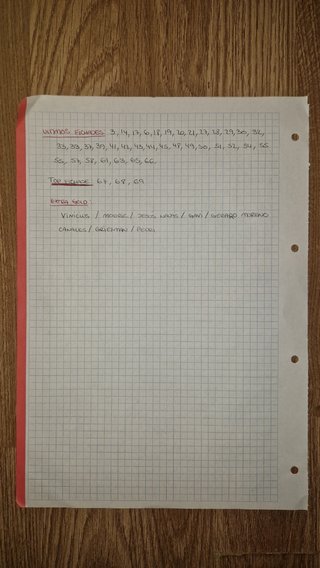 ULTIMOS FICHAJES: 3, 14, 17, 6, 18, 19, 20, 21, 27, 28, 29, 30, 32,
33, 38, 37, 39, 41, 42, 43, 44, 45, 48, 49, 50, 51, 52, 54, 55
55, 57, 58, 61, 63, 65, 66.
TOP FICHAJE: 67, 68, 69
EXTRA GOLD
VINICIUS / MODRIC / JESUS NAVAS / GAVI / GERARD MORENO
CANALES / GRIEZMAN / PEDRI